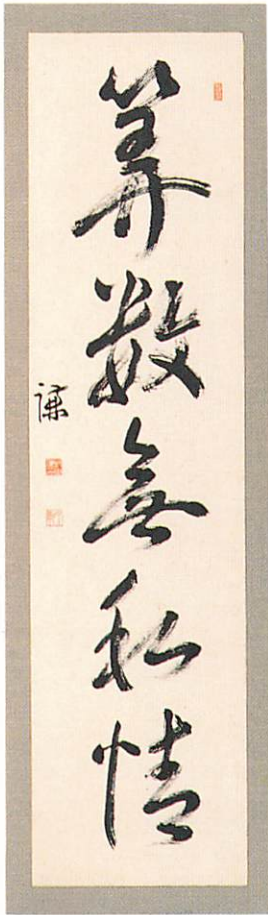 算数無私情
謙